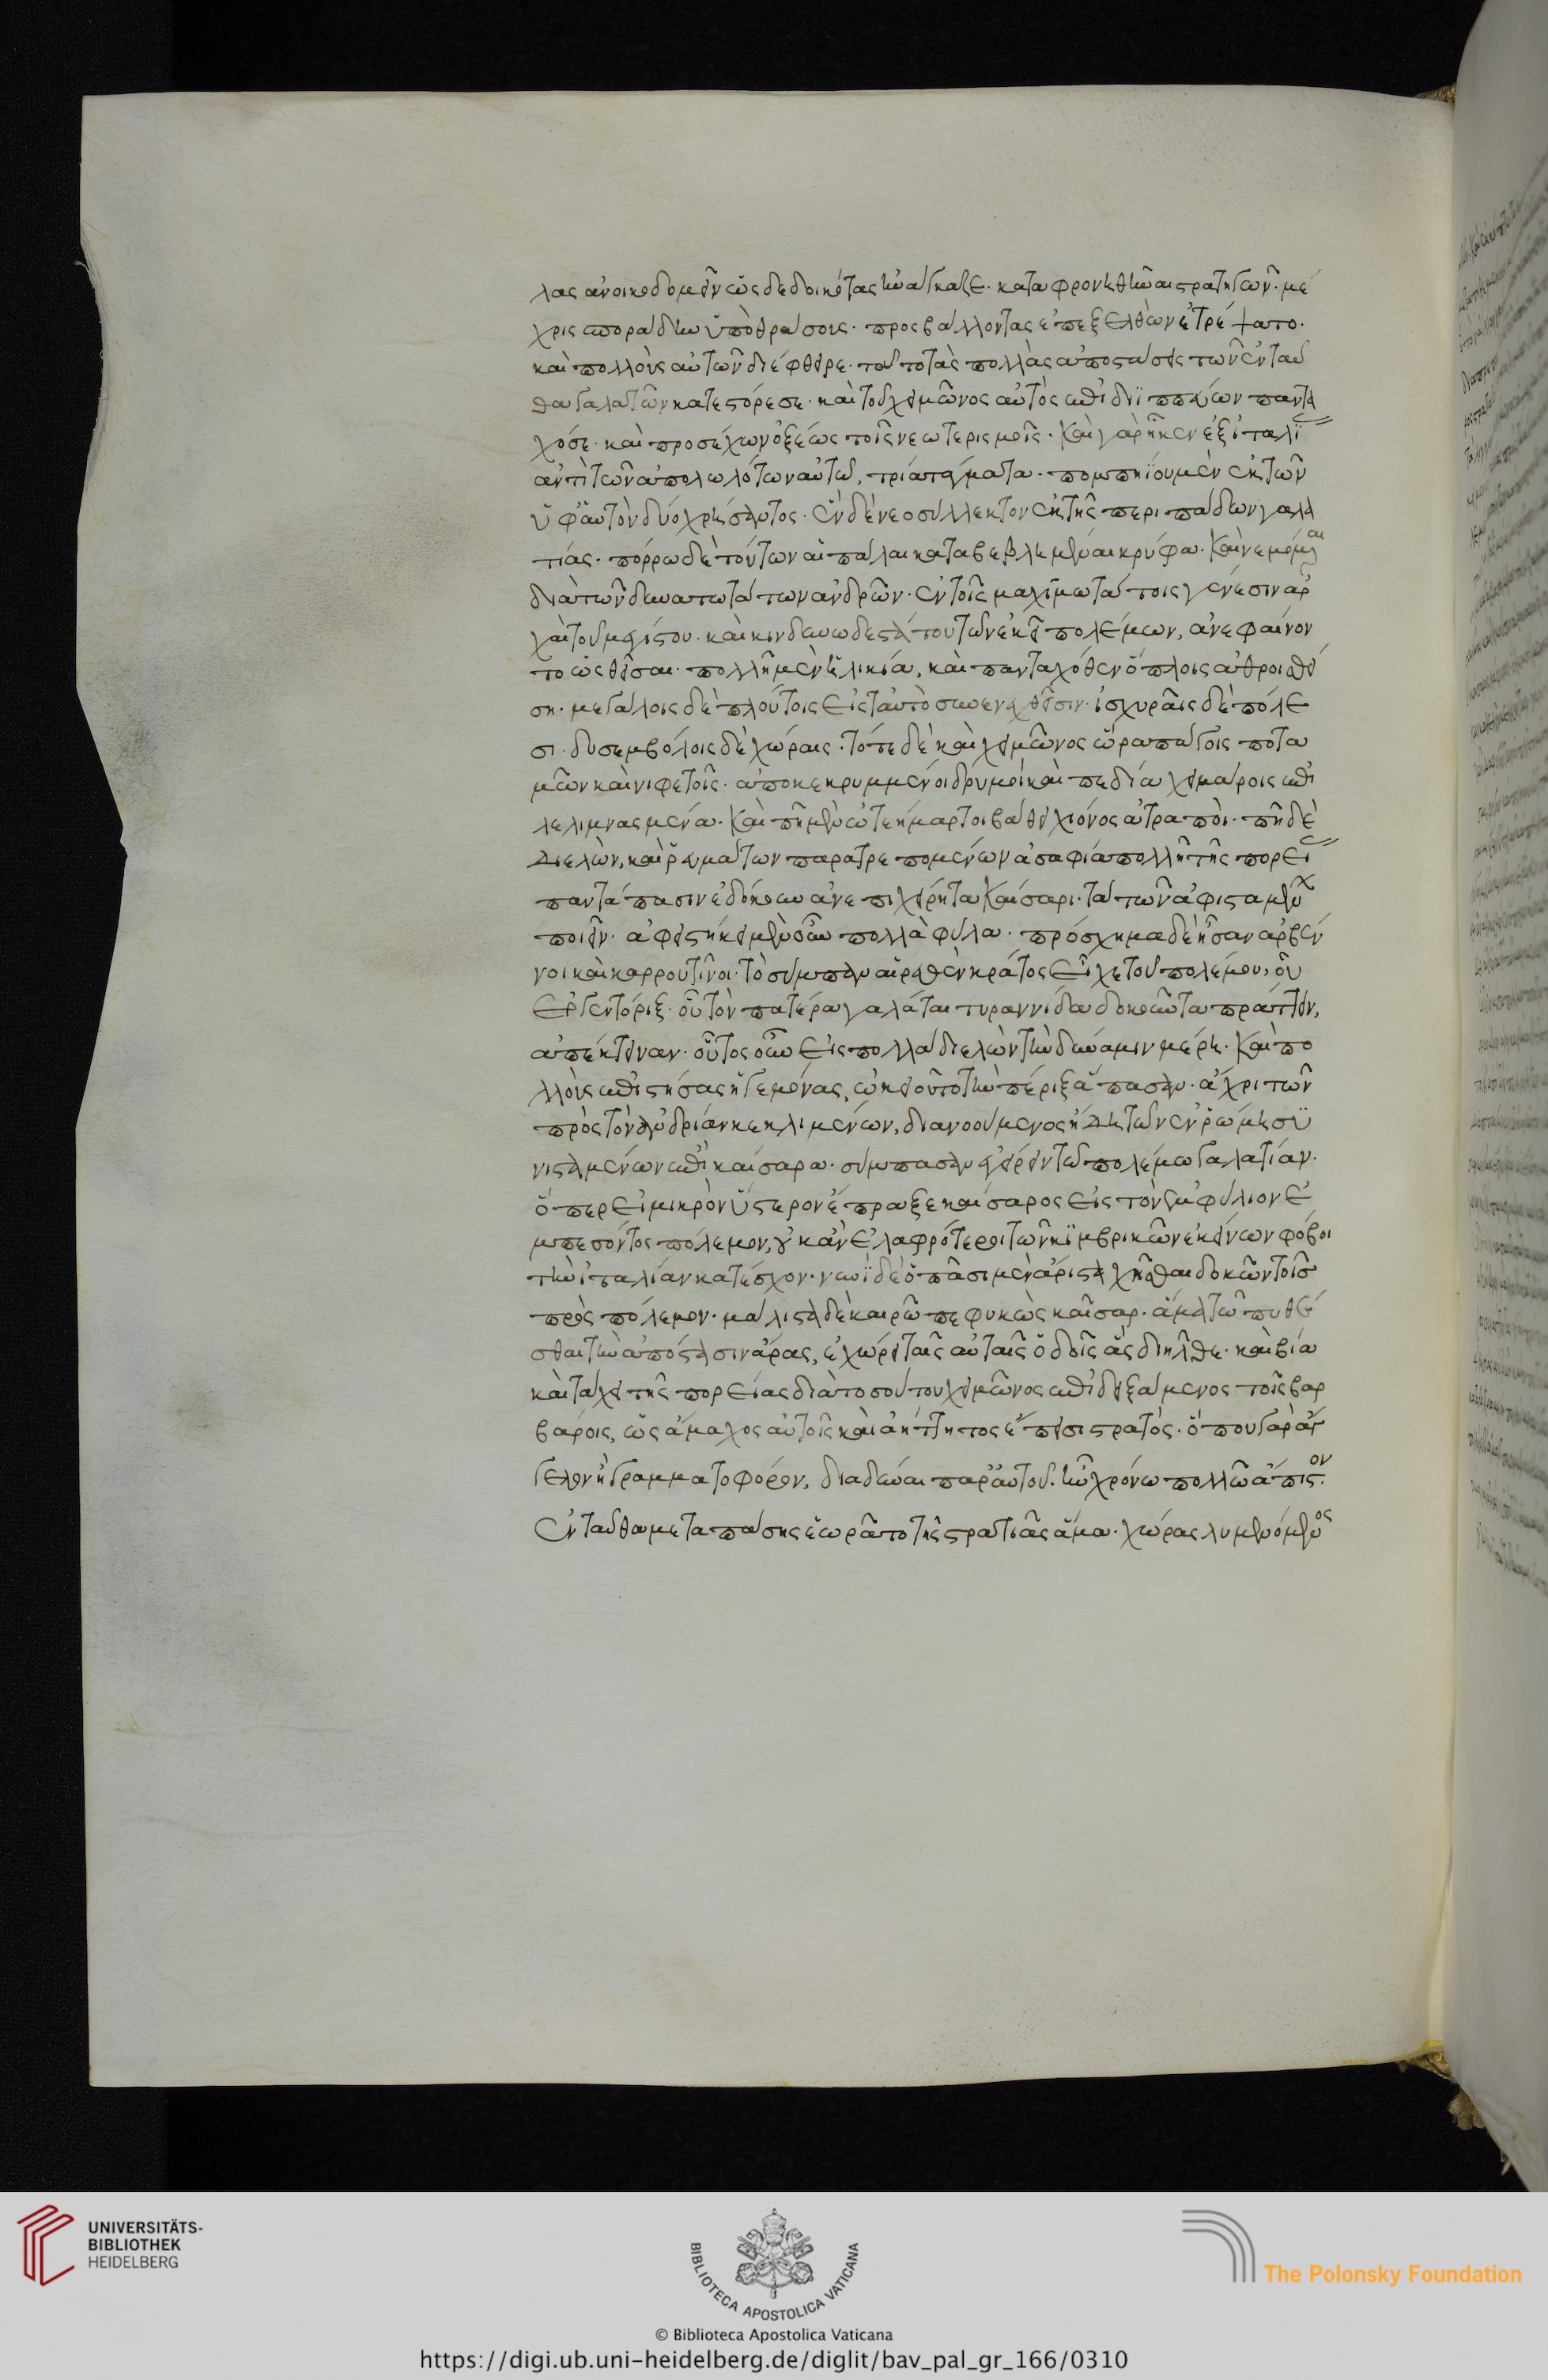 λας ἀνοικοδομεῖν ὡς δεδοικότας ἠνάγκαζε· καταφρονηθῆναι στρατηγῶν· μέ
χρις σποράδην ὑπὸ θράσους· προσβάλλοντας ἐπεξελθὼν ἐτρέψατο·
καὶ πολλοὺς αὐτῶν διέφθειρε· τοῦτο τὰς πολλὰς ἀποστάσεις τῶν ἐνταῦ
θα γαλατῶν κατεστόρεσε· καὶ τοῦ χειμῶνος αὐτὸς ἐπιδιϊππεύων παντα
χόσε· καὶ προσέχων ὀξέως τοῖς νεωτερισμοῖς· Καὶ γὰρ ἧκεν ἐξ ἰταλί
ἀντὶ τῶν ἀπολωλότων αὐτῶ, τρία τάγματα· πομπηΐου μὲν ἐκ τῶν
ὑφ' αὑτὸν δύο χρήσαντος· ἓν δὲ νεοσύλλεκτον ἐκ τῆς περὶ πάδον γαλα
τίας· πόρρω δὲ τούτων αἱ πάλαι καταβεβλημέναι κρύφα· Καὶ νεμόμεναι
διὰ τῶν δυνατωτάτων ἀνδρῶν· ἐν τοῖς μαχιμωτάτοις γένεσιν ἀρ
χαὶ τοῦ μεγίστου· καὶ κινδυνωδεστάτου τῶν ἐκεῖ πολέμων, ἀνεφαίνον
το ῥωσθεῖσαι· πολλῆ μὲν ἡλικία, καὶ πανταχόθεν ὅπλοις ἀθροισθεί
ση· μεγάλοις δὲ πλούτοις εἰς ταὐτὸ συνενεχθεῖσιν· ἰσχυραῖς δὲ πόλε
σι· δυσεμβόλοις δὲ χώραις· τότε δὲ καὶ χειμῶνος ὥρα πάγοις ποτα
μῶν καὶ νιφετοῖς· ἀποκεκρυμμένοι δρυμοὶ καὶ πεδία χειμάρροις ἐπι
λελιμνασμένα· Καὶ πῆ μὲν ἀτέκμαρτοι βάθει χιόνος ἀτραποί· πῆ δὲ
δι' ἑλῶν, καὶ ῥευμάτων παρατρεπομένων ἀσαφία πολλὴ τῆς πορεί
παντάπασιν ἐδόκουν ἀνεπιχείρητα Καίσαρι· τὰ τῶν ἀφισταμένων
ποιεῖν· ἀφειστήκει μὲν οὖν πολλὰ φῦλα· πρόσχημα δὲ ἦσαν ἀρβέν
νοι καὶ καρρουτῖνοι· τὸ σύμπαν αἱρεθὲν κράτος εἶχε τοῦ πολέμου, οὐ
εργεντόριξ· οὗ τὸν πατέρα γαλάται τυραννίδα δοκοῦντα πράττειν,
ἀπέκτειναν· οὗτος οὖν εἰς πολλὰ διελὼν τὴν δύναμιν μέρη· Καὶ πο
λλοὺς ἐπιστήσας ἡγεμόνας, ὠκειοῦτο τὴν πέριξ ἅπασαν· ἄχρι τῶν
πρὸς τὸν ἀνδρίαν κεκλιμένων, διανοούμενος ἤδη τῶν ἐν ῥώμη συ
νισταμένων ἐπὶ καίσαρα· σύμπασαν ἐγείρειν τῶ πολέμω γαλατίαν·
ὅπερ εἰ μικρὸν ὕστερον ἔπραξε καίσαρος εἰς τὸν ἐμφύλιον ἐ
μπεσόντος πόλεμον, οὐκ ἂν ἐλαφρότεροι τῶν κιμβρικῶν ἐκείνων φόβοι
τὴν ἰταλίαν κατέσχον· νυνὶ δὲ ὁ πᾶσι μὲν ἄριστα χρῆσθαι δοκῶν τοῖς
πρὸς πόλεμον· μάλιστα δὲ καιρῶ πεφυκὼς καῖσαρ· ἅμα τῶ πυθέ
σθαι τὴν ἀπόστασιν ἄρας, ἐχώρει ταῖς αὐταῖς ὁδοῖς ἃς διῆλθε· καὶ βία
καὶ τάχει τῆς πορείας διὰ τοσούτου χειμῶνος ἐπιδειξάμενος τοῖς βαρ
βάροις, ὡς ἄμαχος αὐτοῖς καὶ ἀήττητος ἔπεισι στρατός· ὅπου γὰρ ἄγ
γελον ἢ γραμματοφόρον, διαδῦναι παρ' αὐτοῦ· ἦν χρόνω πολλῶ ἄπιστον.
Ἐνταῦθα μετὰ πάσης ἑωρᾶτο τῆς στρατιᾶς ἅμα· χώρας λυμαινόμενος